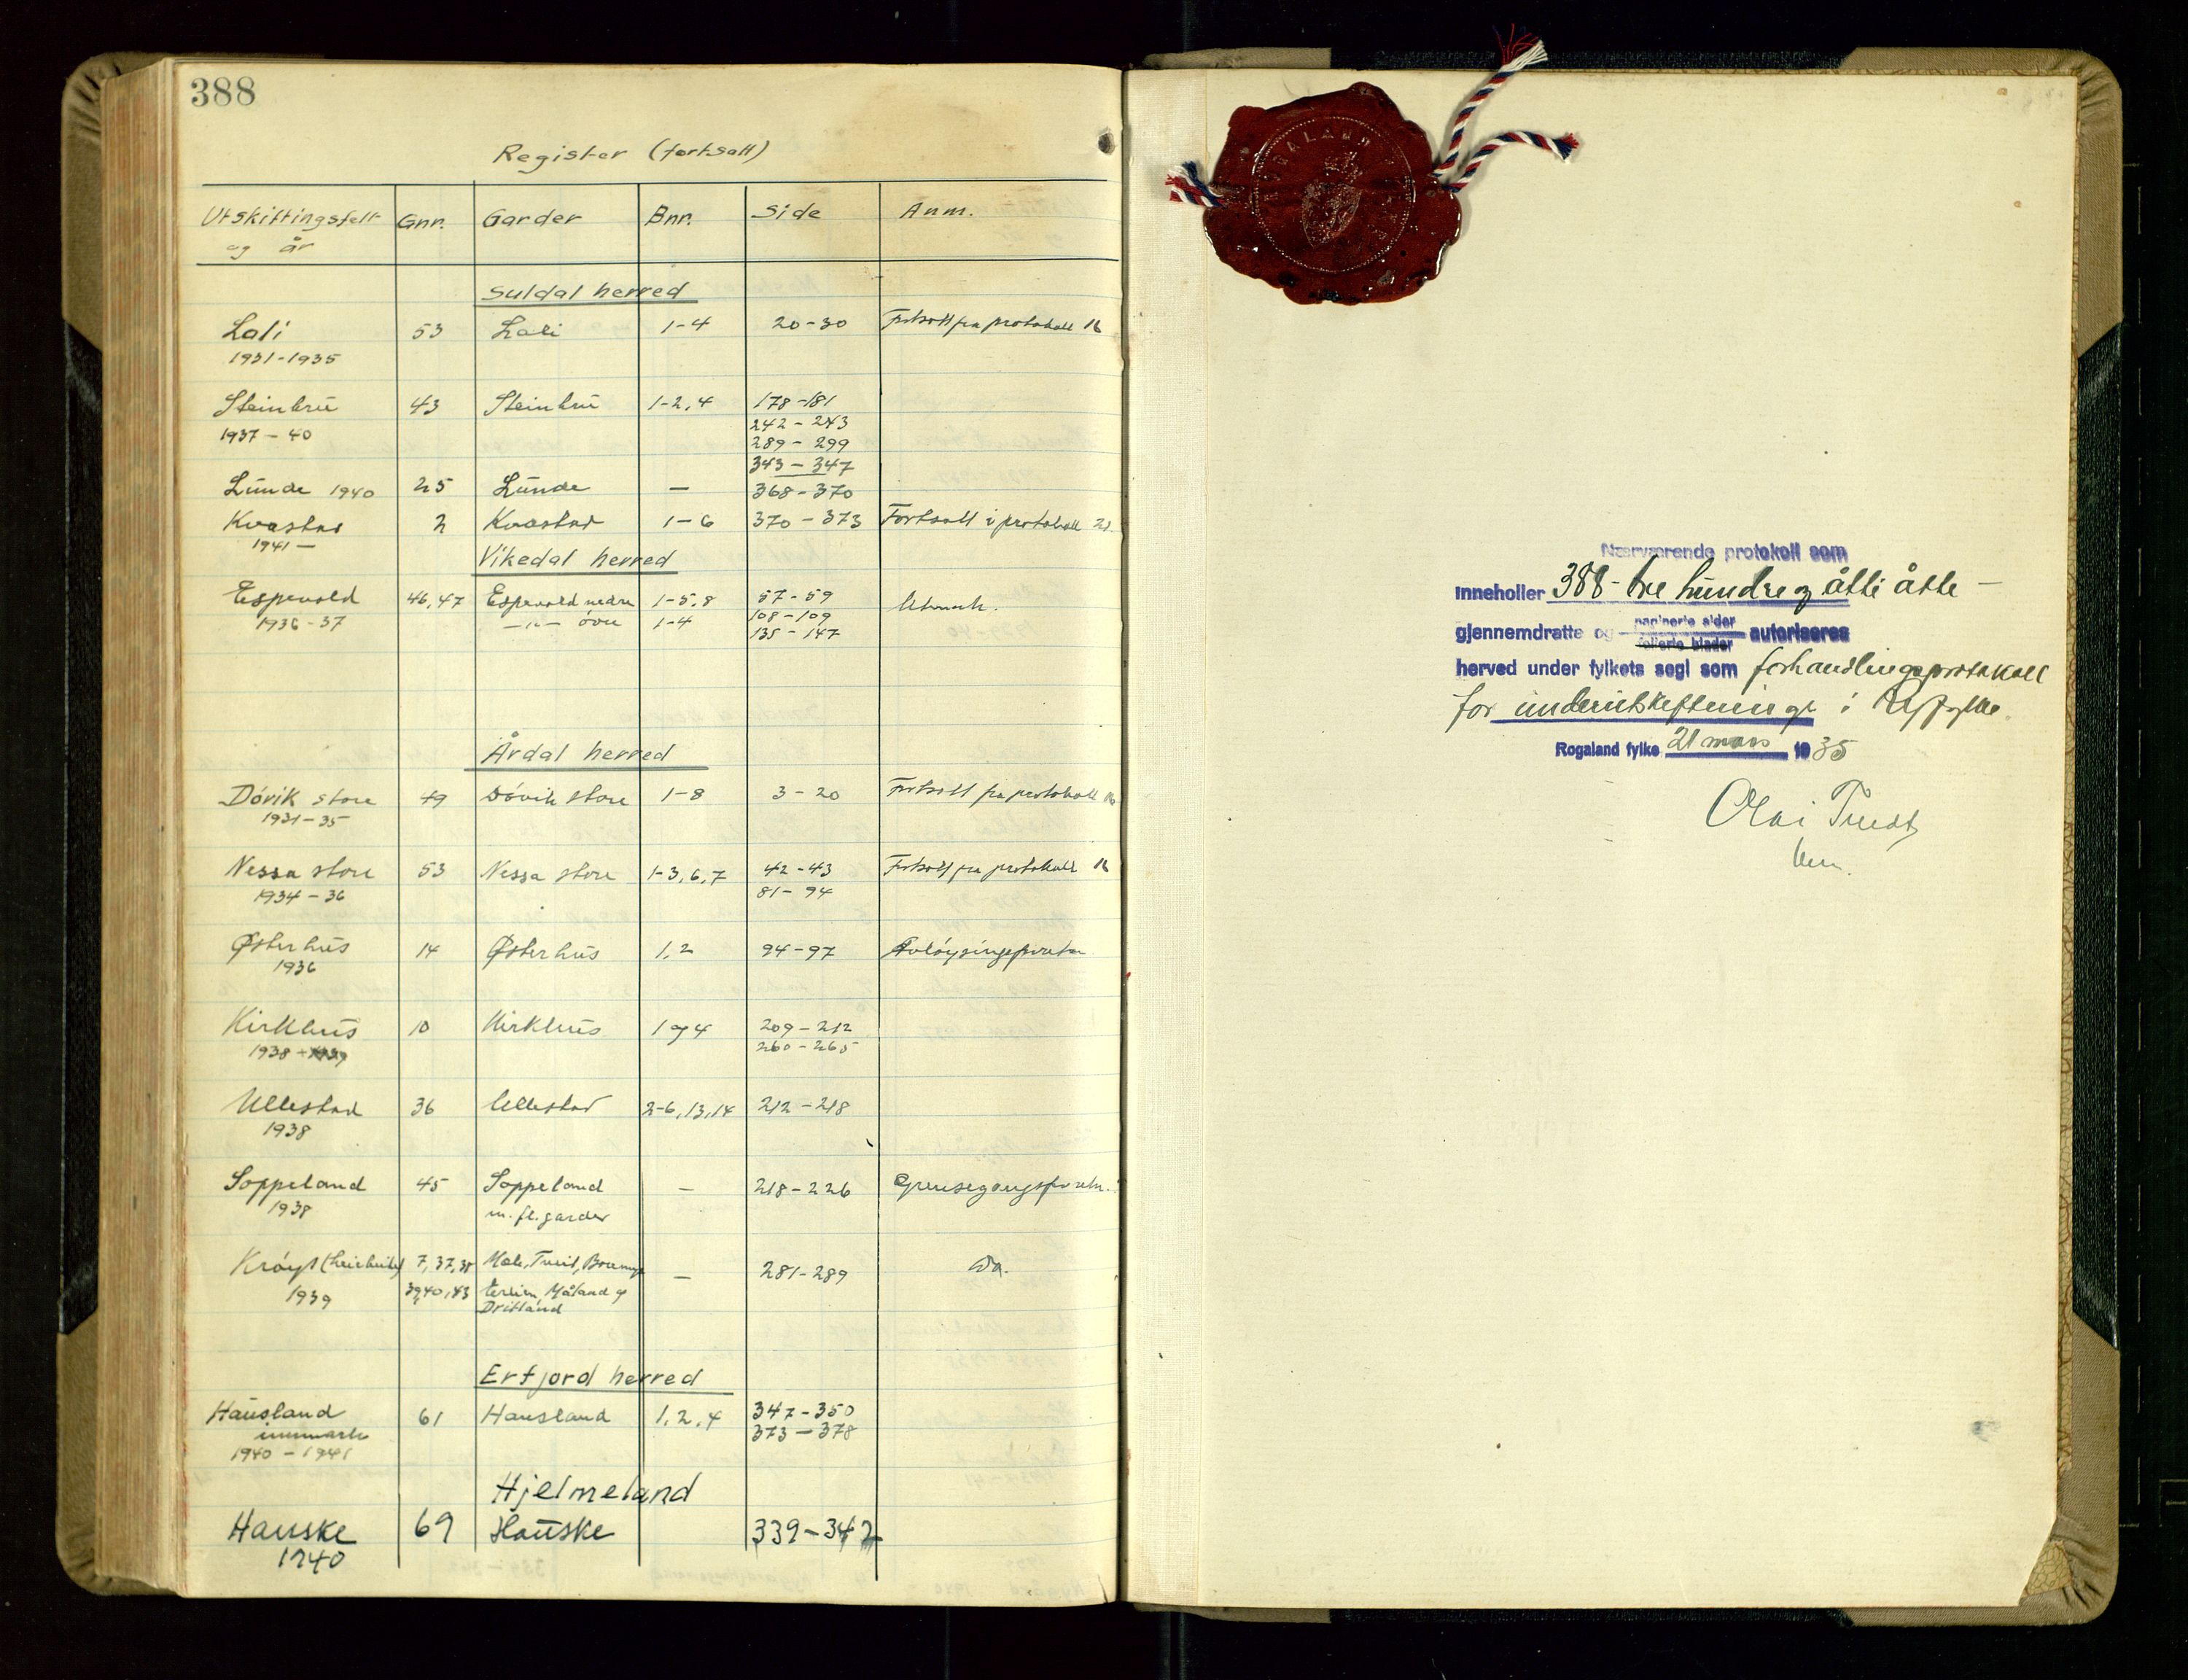 388
Register (fortsatt)
Utskiftingsfelt og år | Gnr. | Garder | Bnr. | Side | Anm.
Suldal herred
Lali 53 Lali 1-4 20-30 Fortsatt fra protokoll 16
1931-1935
Steinbru 43 Steinbru 1-2, 4 178-181
1937-40 242-243
289-299
343-347
Lunde 1940 25 Lunde — 368-370
Kvastad 2 Kvastad 1-6 370-373 Fortsatt i protokoll 21.
1941 —
Vikedal herred
Espevold 46, 47 Espevold nedre 1-5, 8 57-59 Utmark.
1936-37 —"— övre 1-4 108-109
135-147
Årdal herred
Dövik store 49 Dövik store 1-8 3-20 Fortsatt fra protokoll 16
1931-35
Nessa store 53 Nessa store 1-3, 6, 7 42-43 Fortsatt fra protokoll 16
1934-36 81-94
Østerhus 14 Østerhus 1, 2 94-97
1936
Kirkhus 10 Kirkhus 1 og 4 209-212
1938 260-265
Ullestad 36 Ullestad 2-6, 13, 14 212-218
1938
Soppeland 45 Soppeland — 218-226 Grensegangsforretn.
1938 m. fl. garder
7, 37, 38 — 281-289 Do.
1939 39, 40, 43 Måland og
Erfjord herred
Hausland 61 Hausland 1, 2, 4 347-350
innmark 373-378
1940-1941
Hjelmeland
Hauske 69 Hauske 339-342
1940
ROGALAND FYLKE
Nærværende protokoll som
inneholler 388 - tre hundre og åtti åtte —
gjennemdratte og paginerte sider autoriseres
follerte blader
herved under fylkets segl som forhandlingsprotokoll
for underutskiftninger i Rfylke.
Rogaland fylke 21 mars 1935